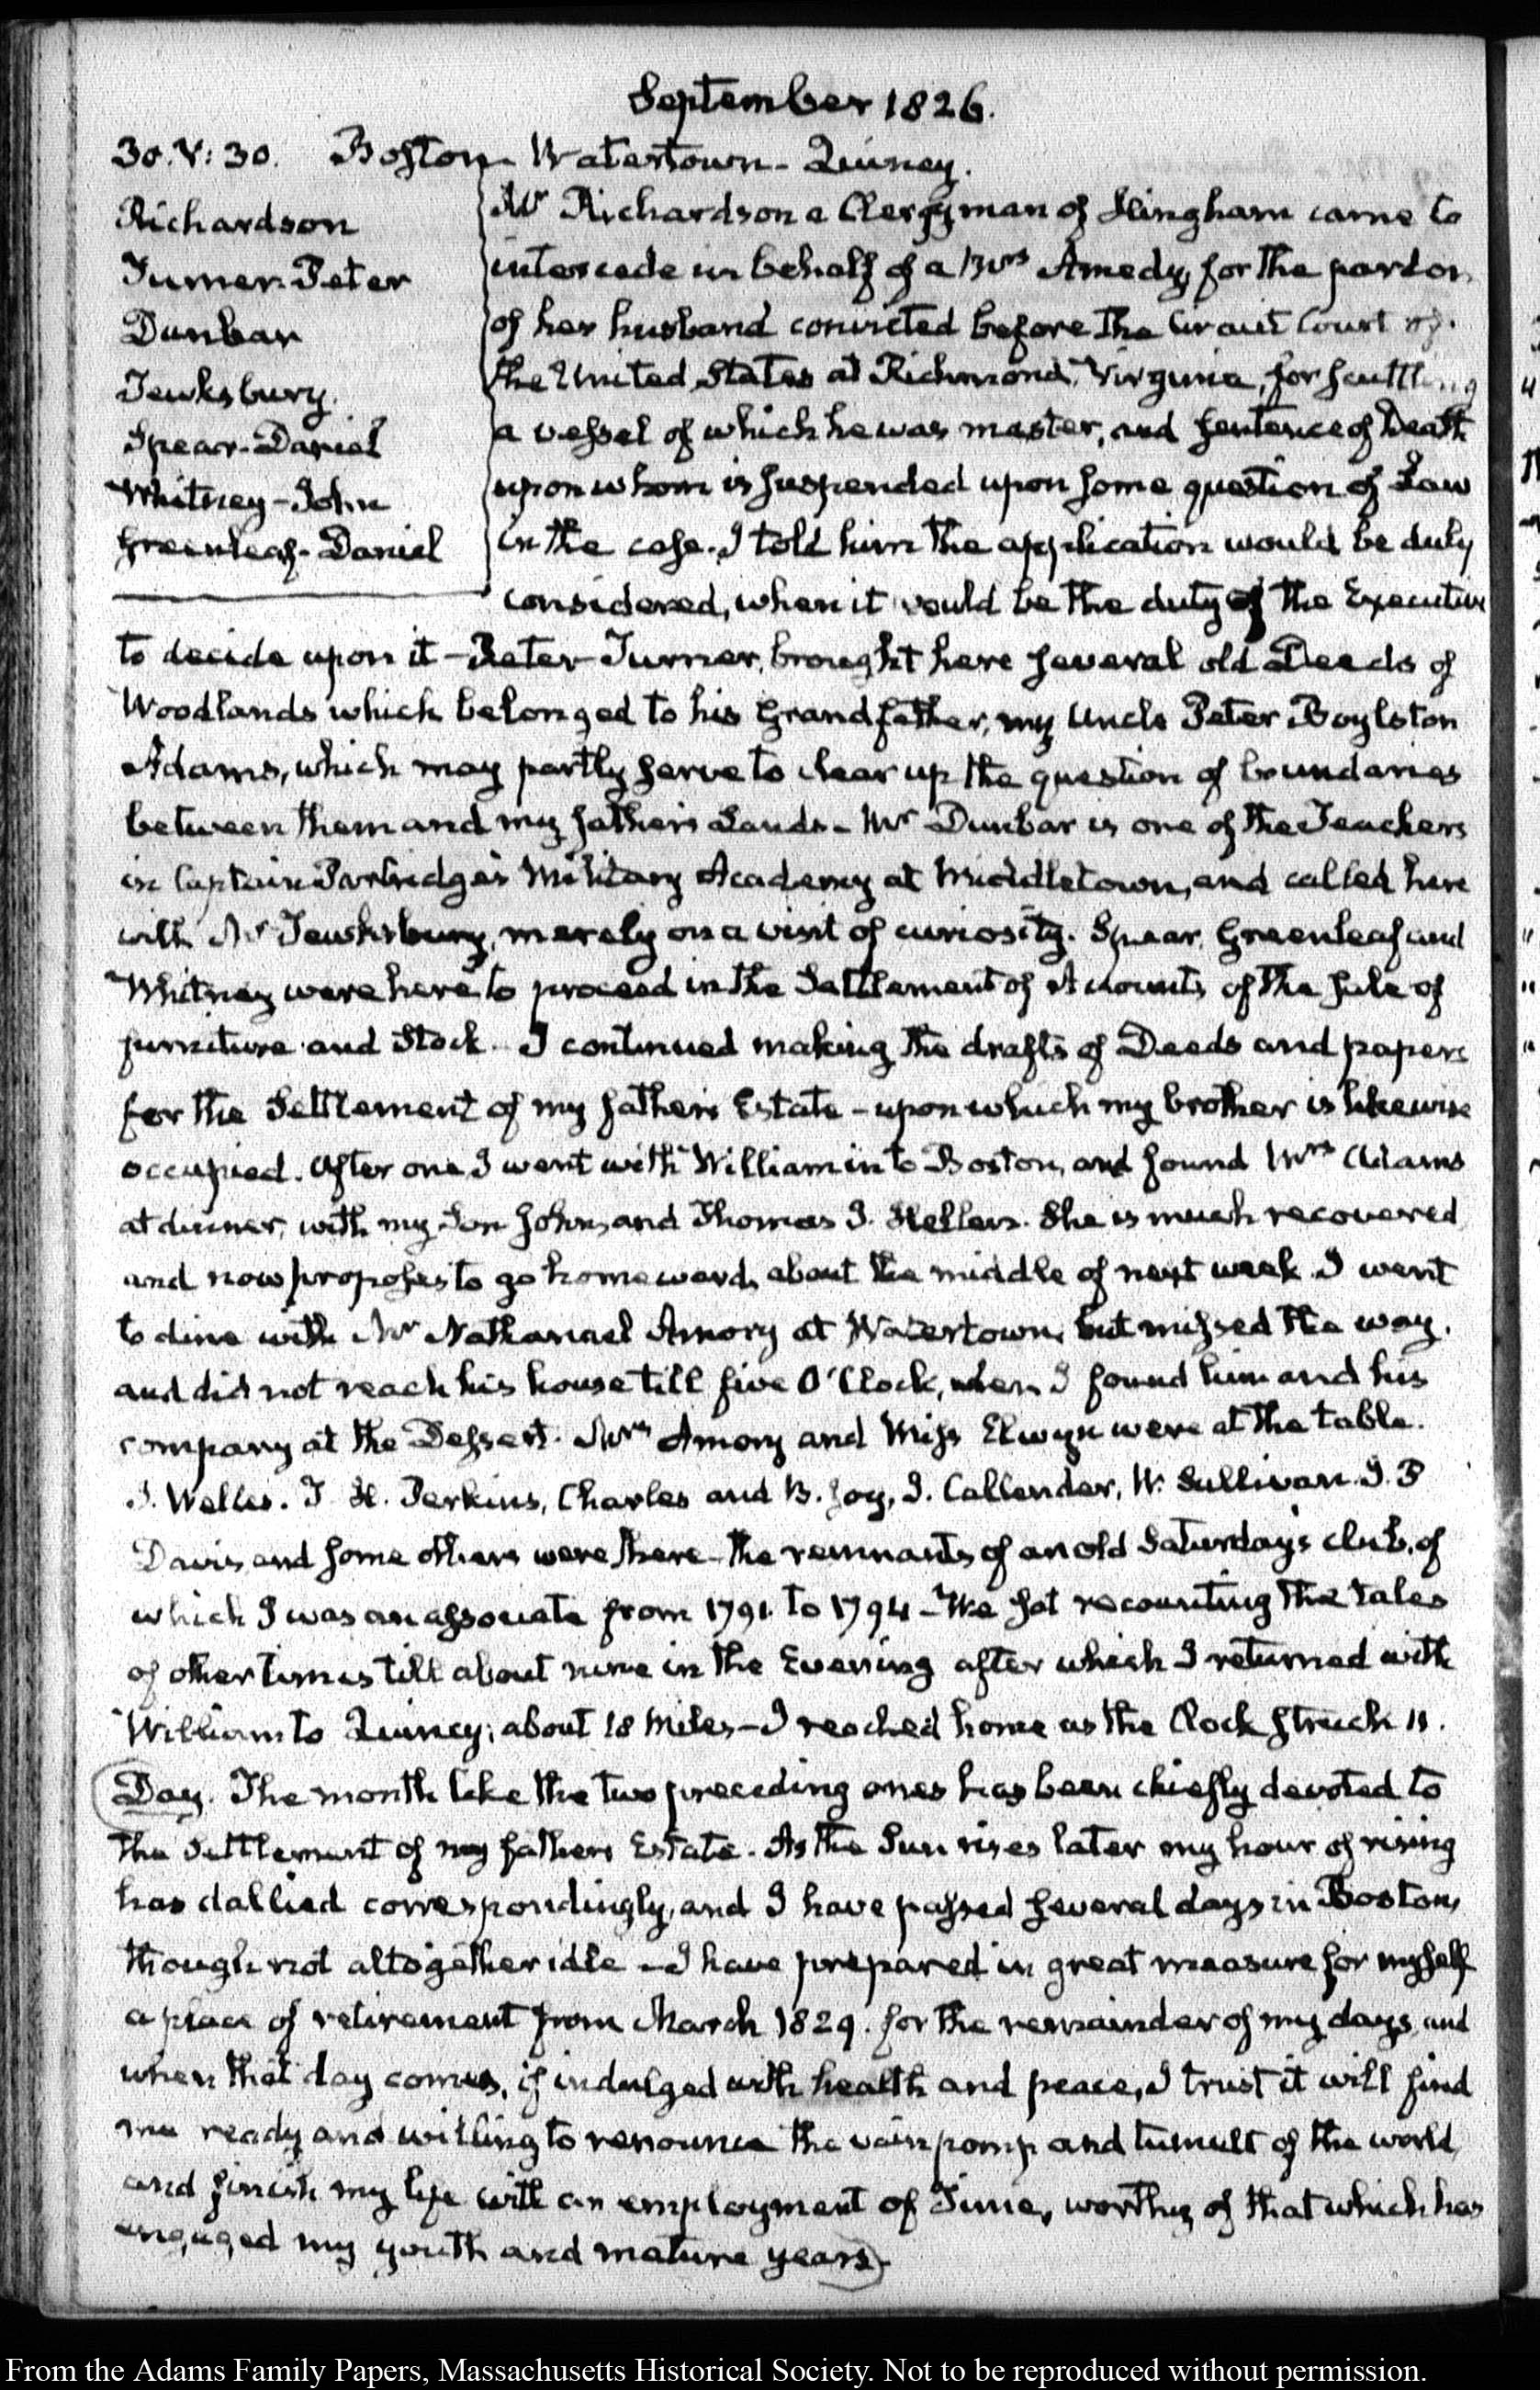 September 1826.
30. V: 30. Boston - Watertown - Quincy.
Richardson
Turner. Peter
Dunbar
Tewksbury.
Spear - Daniel
Whitney - John
Greenleaf - Daniel
Mr Richardson a Clergyman of Hingham came to
intercede in behalf of a Mrs Amedy, for the pardon
of her husband convicted before the Circuit Court of
the United States at Richmond, Virginia, for scuttling
a vessel of which he was master, and sentence of Death
upon whom is suspended upon some question of Law
in the case. I told him the application would be duly
considered, when it would be the duty of the Executive
to decide upon it - Peter Turner, brought here several old Deeds of
Woodlands which belonged to his Grandfather, my Uncle Peter Boylston
Adams, which may partly serve to clear up the question of boundaries
between them and my father's Lands - Mr Dunbar is one of the Teachers
in Captain Partridge's Military Academy at Middletown, and called here
with Mr Tewksbury, merely on a visit of curiosity. Spear, Greenleaf and
Whitney were here to proceed in the Settlement of Accounts of the sale of
furniture and Stock - I continued making the drafts of Deeds and papers
for the Settlement of my father's Estate - upon which my brother is likewise
occupied. After one I went with William into Boston, and found Mrs Adams
at dinner, with my Son John, and Thomas J. Hellen. She is much recovered
and now proposes to go homeward, about the middle of next week. I went
to dine with Mr Nathanael Amory at Watertown, but missed the way,
and did not reach his house till five O'Clock, when I found him and his
company at the Dessert. Mrs Amory and Miss Elwyn were at the table.
J. Welles. T. H. Perkins, Charles and B. Joy, J. Callender, W. Sullivan J. P
Davis, and some others were there - the remnants of an old Saturday's club, of
which I was an associate from 1791. to 1794 - We sat recounting the tales
of other times till about nine in the Evening after which I returned with
William to Quincy; about 18 Miles - I reached home as the Clock struck 11.
Day. The month like the two preceding ones has been chiefly devoted to
the Settlement of my father's Estate. As the Sun rises later my hour of rising
has dallied correspondingly, and I have passed several days in Boston,
though not altogether idle - I have prepared in great measure for myself
a place of retirement from March 1829. for the remainder of my days, and
when that day comes, if indulged with health and peace, I trust it will find
me ready and willing to renounce the vain pomp and tumult of the world,
and finish my life with an employment of Time, worthy of that which has
engaged my youth and mature years.
From the Adams Family Papers, Massachusetts Historical Society. Not to be reproduced without permission.